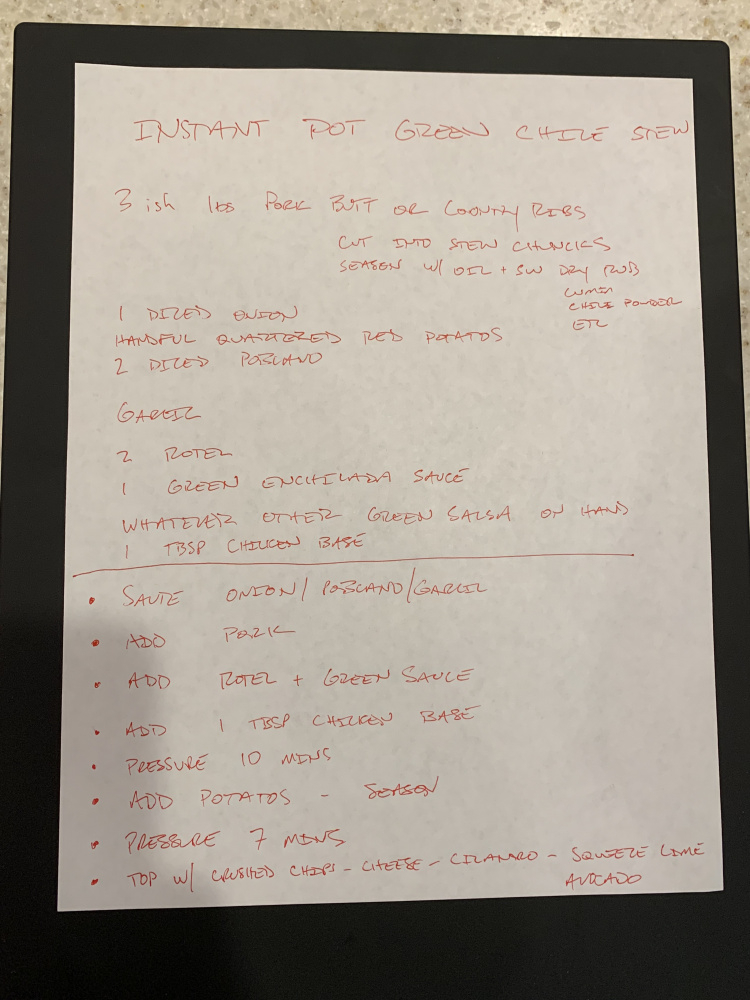 INSTANT POT GREEN CHILE STEW
3 ish lbs PORK BUTT OR COUNTRY RIBS
CUT INTO STEW CHUNCKS
SEASON W/ OIL + SW DRY RUB
CUMIN
CHILE POWDER
ETC
1 DICED ONION
HANDFUL QUARTERED RED POTATOS
2 DICED POBLANO
GARLIC
2 ROTEL
1 GREEN ENCHILADA SAUCE
WHATEVER OTHER GREEN SALSA ON HAND
1 TBSP CHICKEN BASE
• SAUTE ONION/POBLANO/GARLIC
• ADD PORK
• ADD ROTEL + GREEN SAUCE
• ADD 1 TBSP CHICKEN BASE
• PRESSURE 10 MINS
• ADD POTATOS - SEASON
• PRESSURE 7 MINS
• TOP W/ CRUSHED CHIPS - CHEESE - CILANTRO - SQUEEZE LIME
AVOCADO